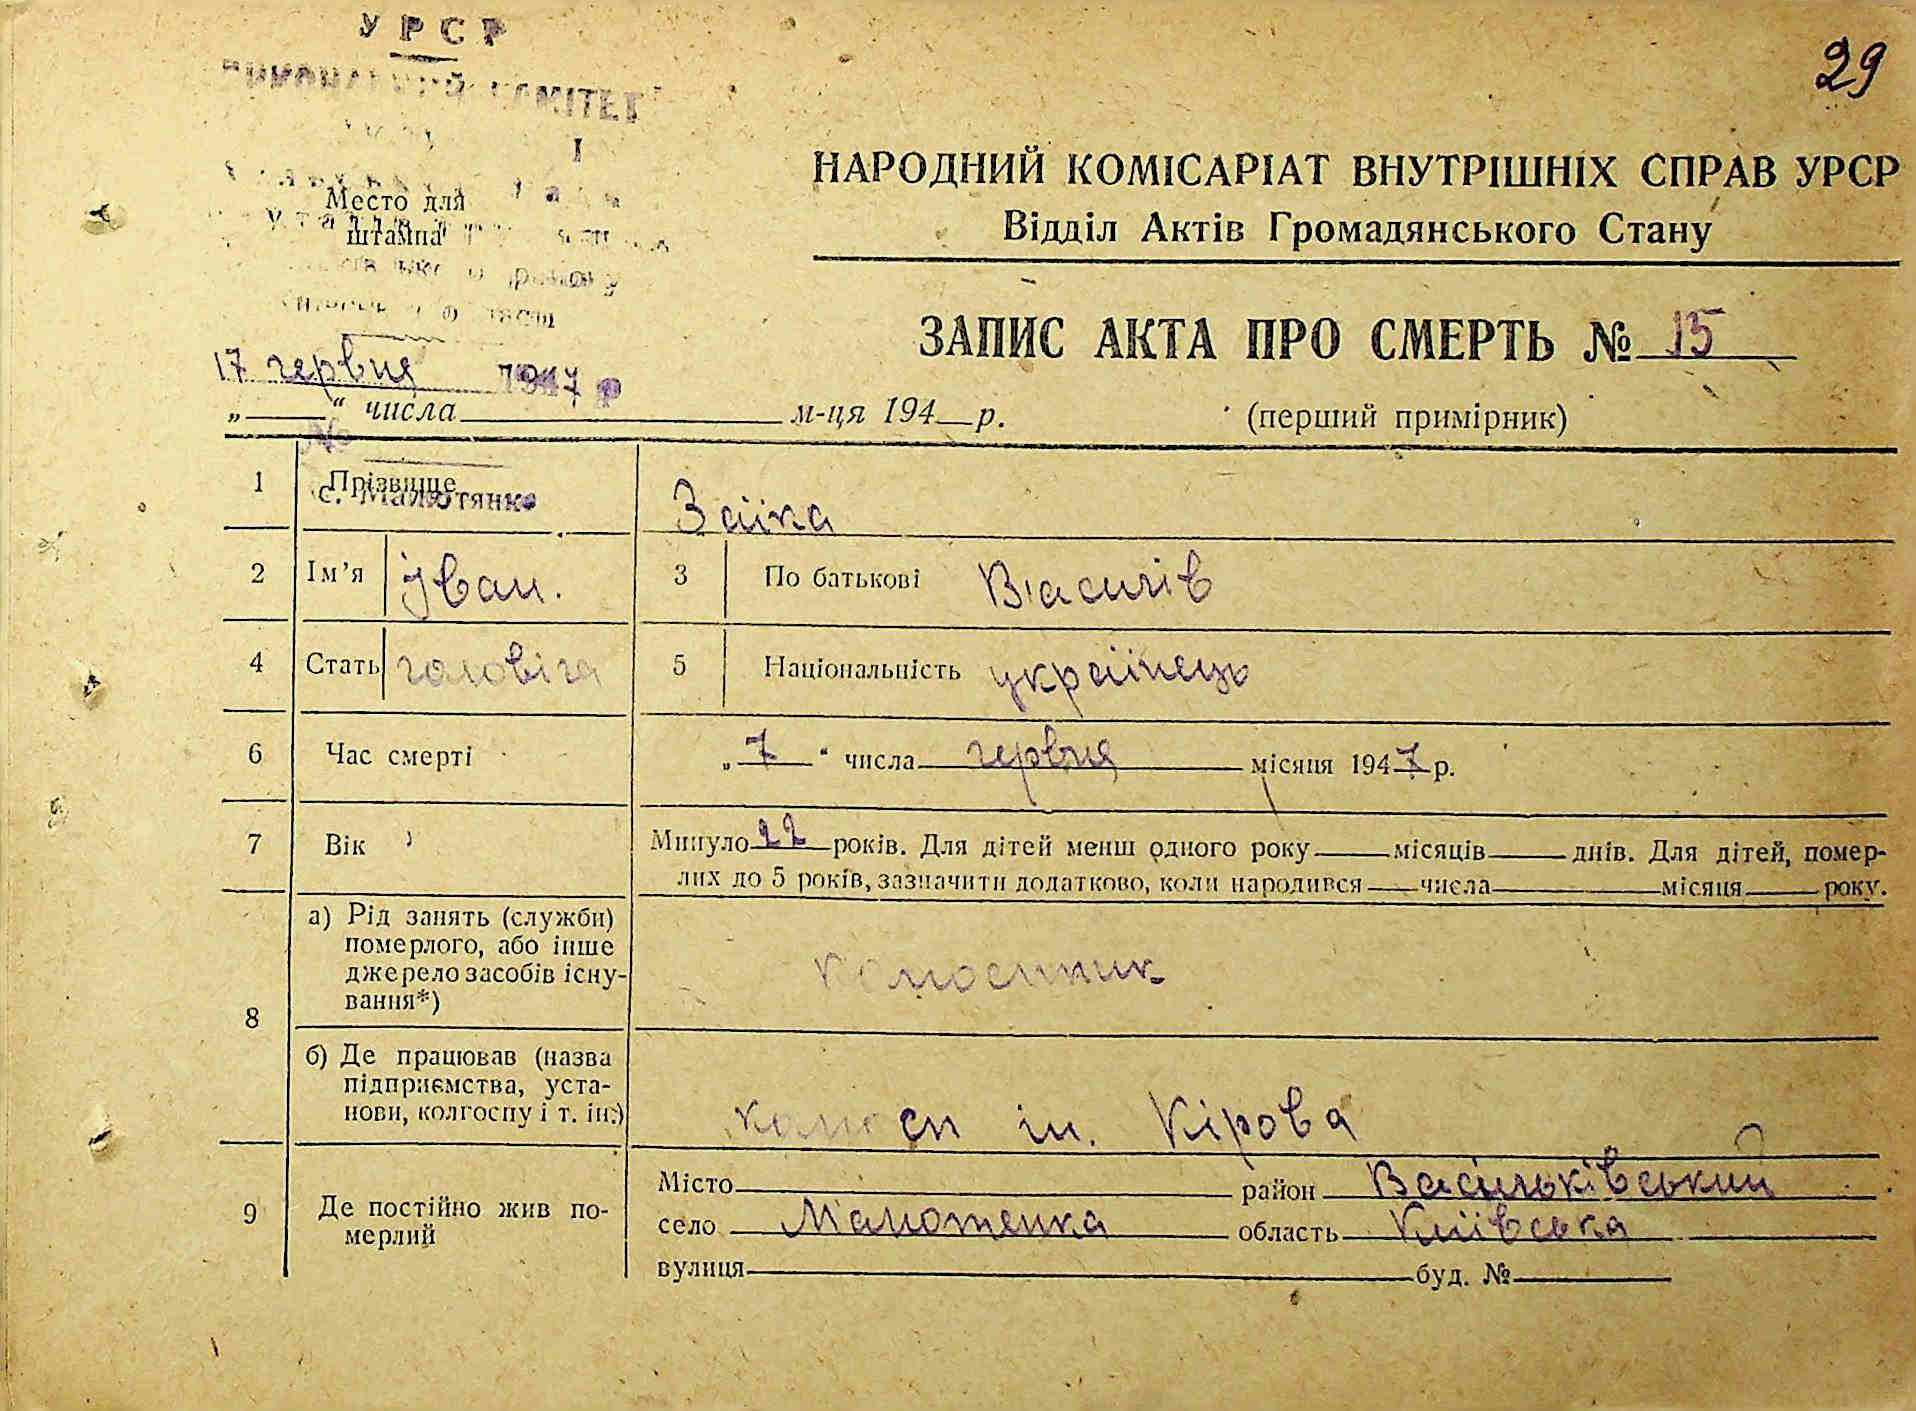 УРСР
29
ВИКОНАВЧИЙ КОМІТЕТ
НАРОДНИЙ КОМІСАРІАТ ВНУТРІШНІХ СПРАВ УРСР
Место для
штампа
Відділ Актів Громадянського Стану
району
ЗАПИС АКТА ПРО СМЕРТЬ № 15
17 червня 1947 р
„ “ числа м-ця 194 р.
(перший примірник)
№
1 Прізвище Заїка
с. Малютянка
2 Ім’я Іван. 3 По батькові Василів
4 Стать чоловіча 5 Національність українець
6 Час смерті „ 7 “ числа червня місяця 1947 р.
7 Вік Минуло 22 років. Для дітей менш одного року місяців днів. Для дітей, помер-
лих до 5 років, зазначити додатково, коли народився числа місяця року.
8 а) Рід занять (служби)
померлого, або інше
джерело засобів існу-
вання*)
колгоспник
б) Де працював (назва
підприємства, уста-
нови, колгоспу і т. ін.)
колгосп ім. Кірова
9 Де постійно жив по-
мерлий
Місто район Васильківський
село Малютенка область Київська
вулиця буд. №